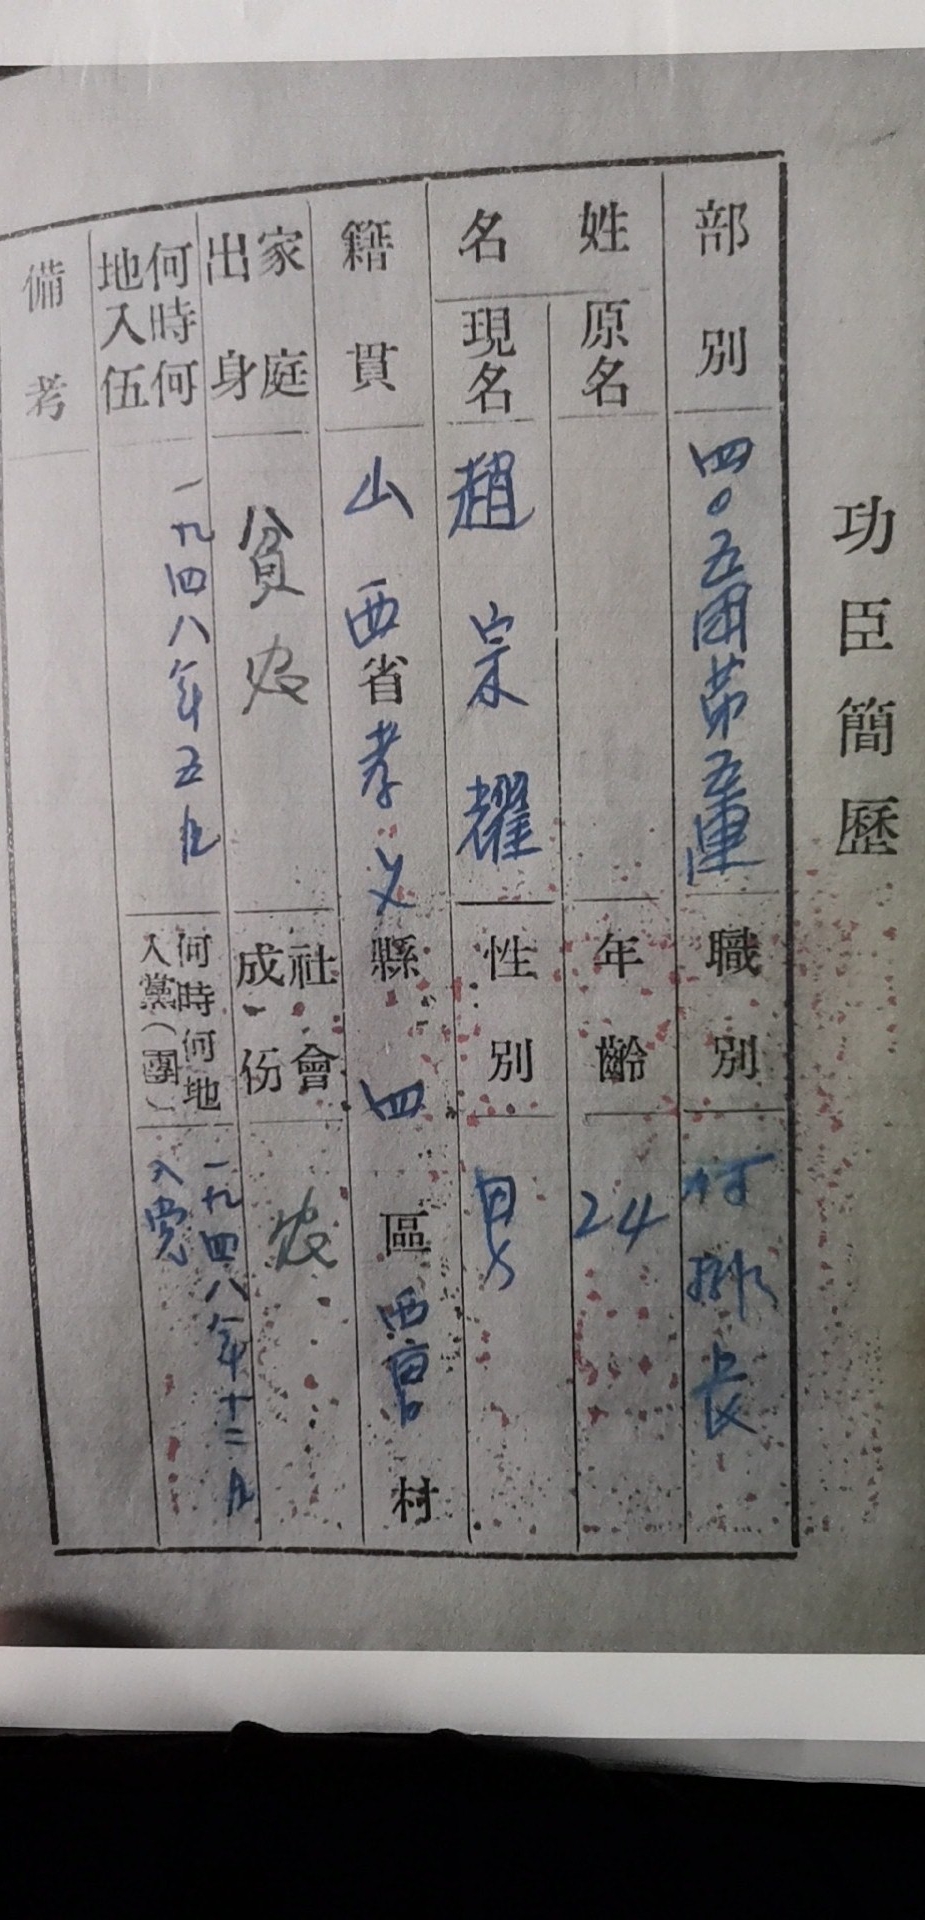 功臣簡歷
部別
四〇五團第五連
職別
排長
姓名
原名
年齡
24
現名
趙宗耀
性別
男
籍貫
山西省孝义縣四區西官村
家庭出身
貧农
社會成份
农
何時何地入伍
一九四八年五月
何時何地入黨（團）
一九四八年十二月
入党
備考